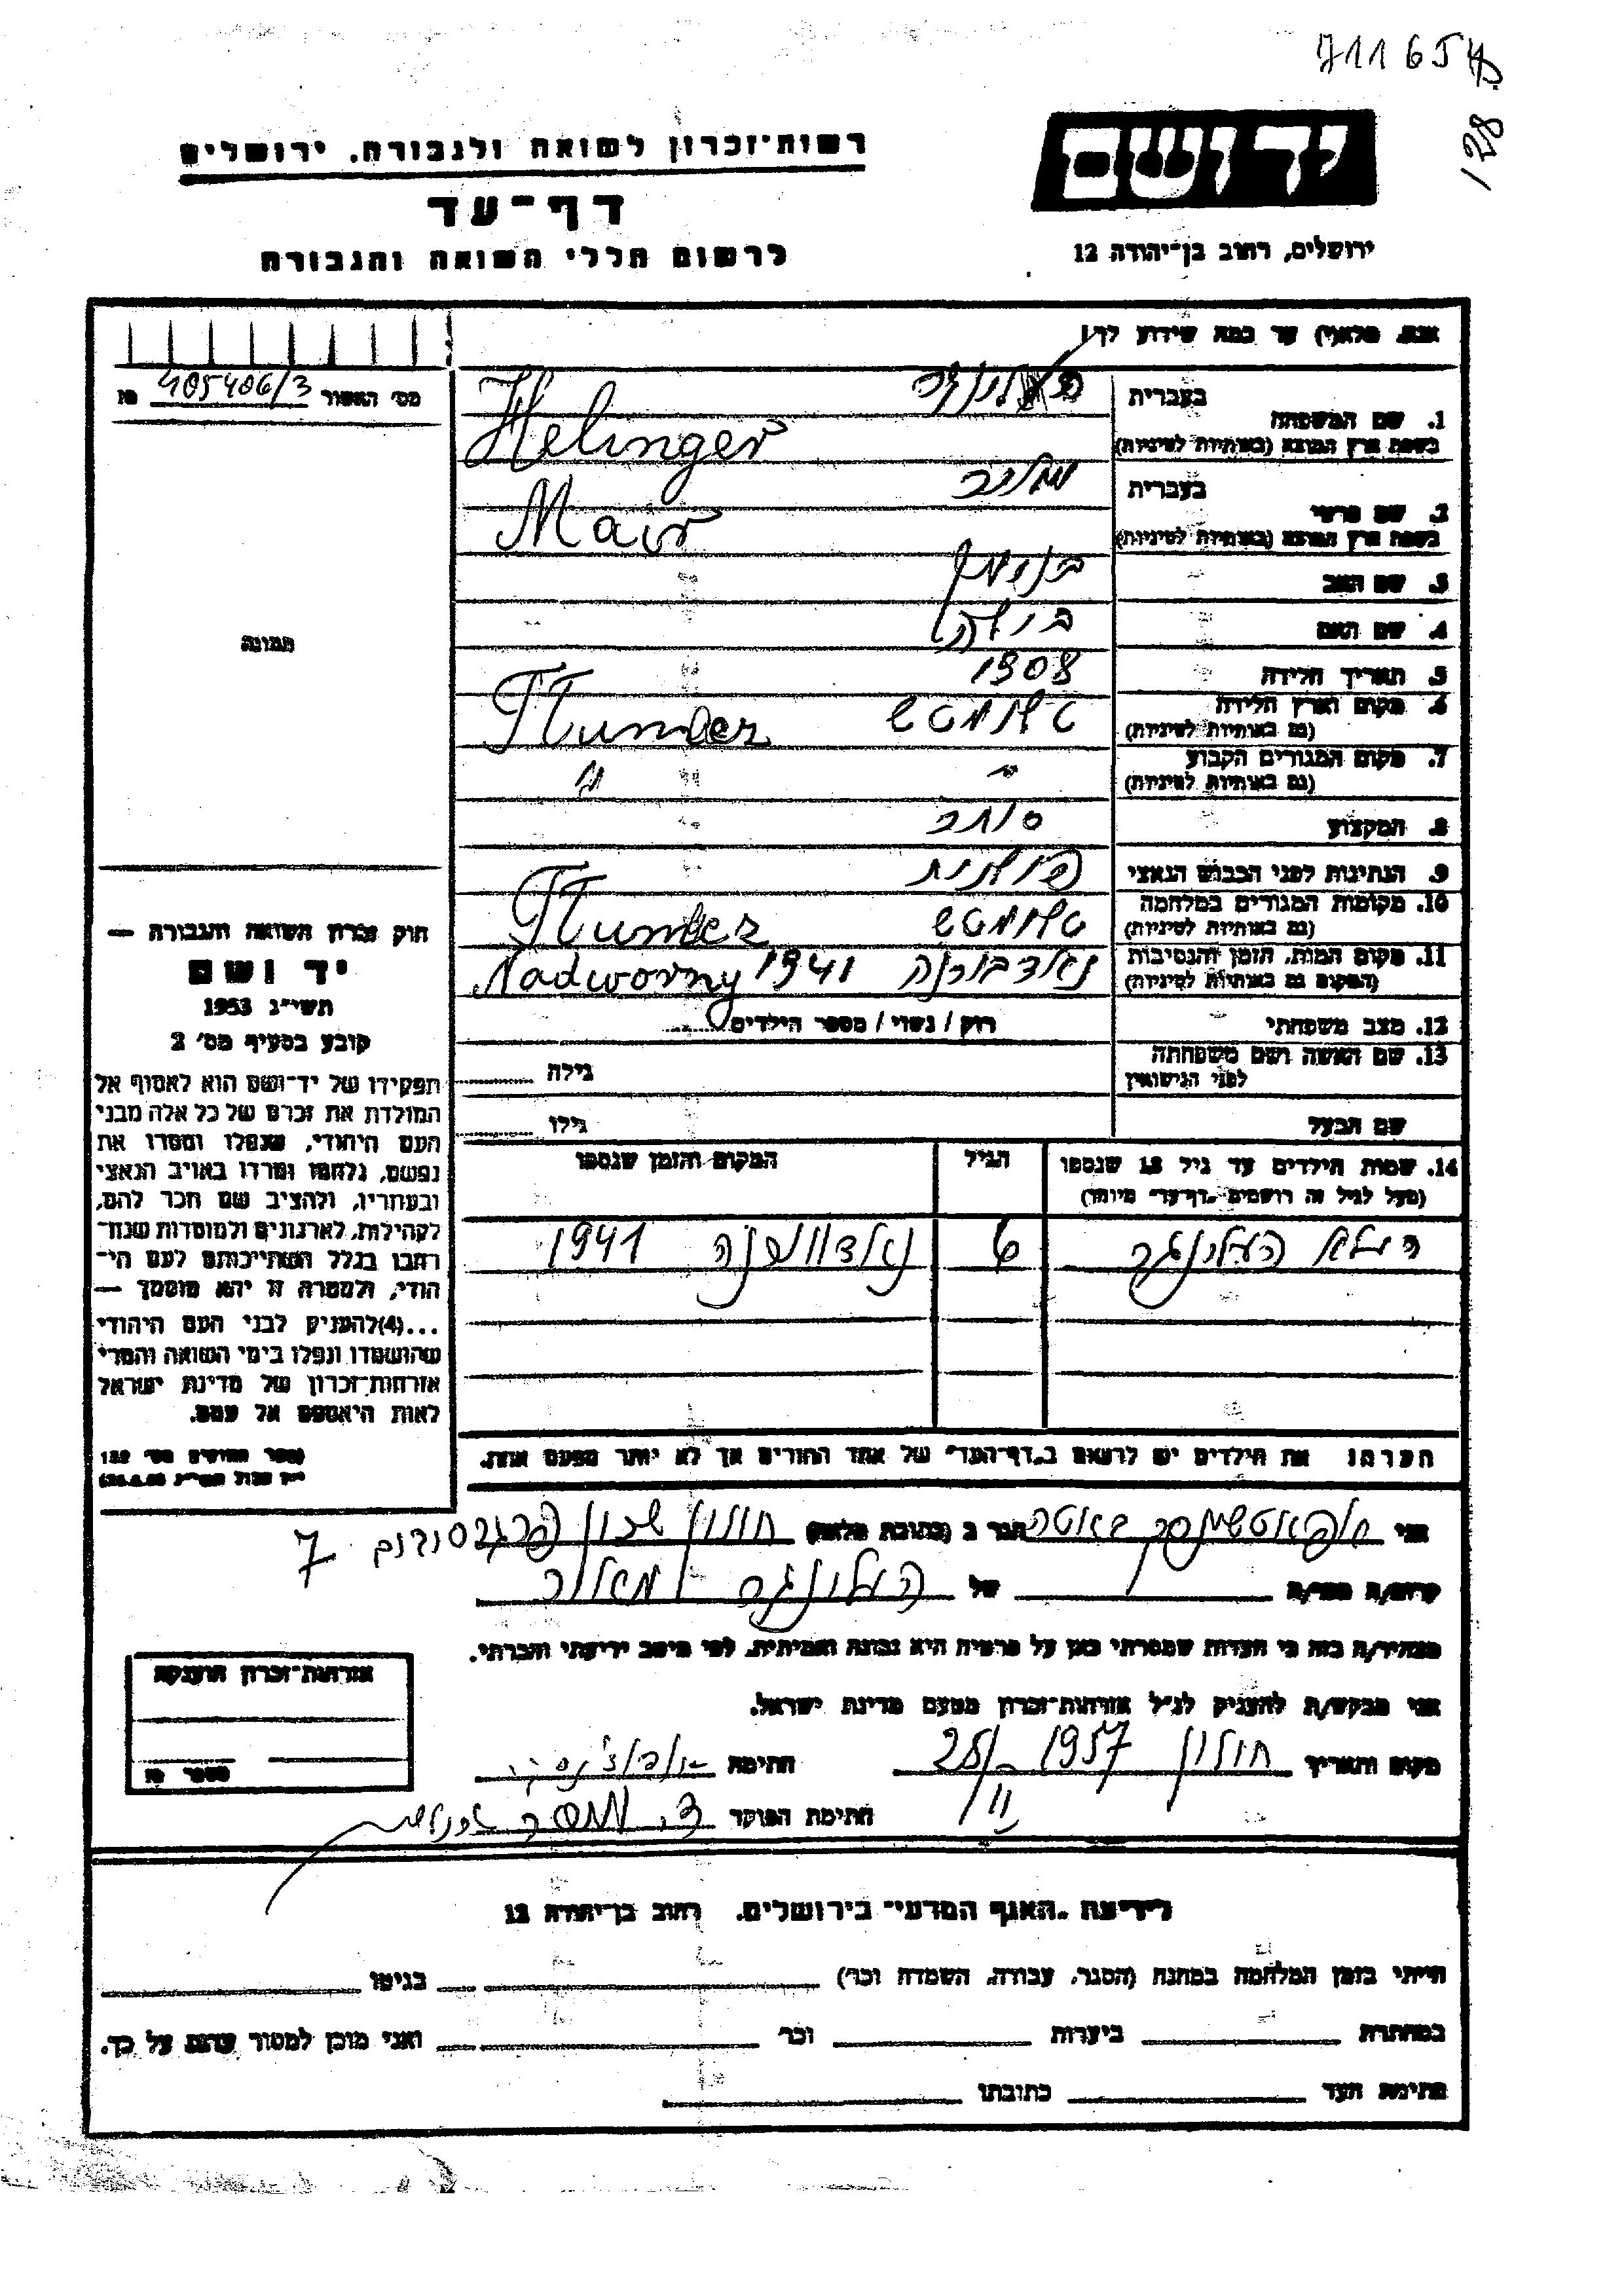 711654
128
יד ושם
ירושלים, רחוב בן־יהודה 12
רשות־זכרון לשואה ולגבורה, ירושלים
דף־עד
לרשום חללי השואה והגבורה
אנא, מלא(י) עד כמה שידוע לך!
1. שם המשפחה
בעברית
בשפת ארץ המוצא (באותיות לטיניות)
Helinger
2. שם פרטי
בעברית מאיר
בשפת ארץ המוצא (באותיות לטיניות)
Mair
3. שם האב בנימין
4. שם האם
5. תאריך הלידה 1908
6. מקום וארץ הלידה
(גם באותיות לטיניות)
Tlumber
7. מקום המגורים הקבוע
(גם באותיות לטיניות)
" "
8. המקצוע סוחר
9. הנתינות לפני הכבוש הנאצי פולנית
10. מקומות המגורים במלחמה
(גם באותיות לטיניות)
Tlumber
11. מקום המות, הזמן והנסיבות
(המקום גם באותיות לטיניות)
נאדבורנה 1941 Nadworny
12. מצב משפחתי רוק / נשוי / מספר הילדים
13. שם האשה ושם משפחתה
לפני הנישואין
גילה
שם הבעל
גילו
14. שמות הילדים עד גיל 18 שנספו
(מעל לגיל זה רושמים „דף־עד" מיוחד)
הגיל
המקום והזמן שנספו
העלינגר 6 1941
הערה: את הילדים יש לרשום ב„דף־העד" של אחד ההורים אך לא יותר מפעם אחת.
מס' האשור 405406/3 סז
תמונה
חוק זכרון השואה והגבורה —
יד ושם
תשי"ג 1953
קובע בסעיף מס' 2
תפקידו של יד־ושם הוא לאסוף אל
המולדת את זכרם של כל אלה מבני
העם היהודי, שנפלו ומסרו את
נפשם, נלחמו ומרדו באויב הנאצי
ובעוזריו, ולהציב שם וזכר להם,
לקהילות, לארגונים ולמוסדות שנח־
רבו בגלל השתייכותם לעם הי־
הודי, ולמטרה זו יהא מוסמך —
...(4)להעניק לבני העם היהודי
שהושמדו ונפלו בימי השואה והמרי
אזרחות־זכרון של מדינת ישראל
לאות היאספם אל עמם.
(ספר החוקים מס' 132
אני הגר ב (כתובת מלאה) חולון 7
קרוב/ה מכר/ה של העלינגר מאיר
מצהיר/ה בזה כי העדות שמסרתי כאן על פרטיה היא נכונה ואמיתית, לפי מיטב ידיעתי והכרתי.
אני מבקש/ת להעניק לנ"ל אזרחות־זכרון מטעם מדינת ישראל.
מקום ותאריך חולון 28/II 1957 חתימה
חתימת הפוקד
אזרחות־זכרון הוענקה
מספר סז
לידיעת „האגף המדעי" בירושלים, רחוב בן־יהודה 12
הייתי בזמן המלחמה במחנה (הסגר, עבודה, השמדה וכו') בגיטו
במחתרת ביערות וכו' ואני מוכן למסור עדות על כך.
חתימת העד כתובתו